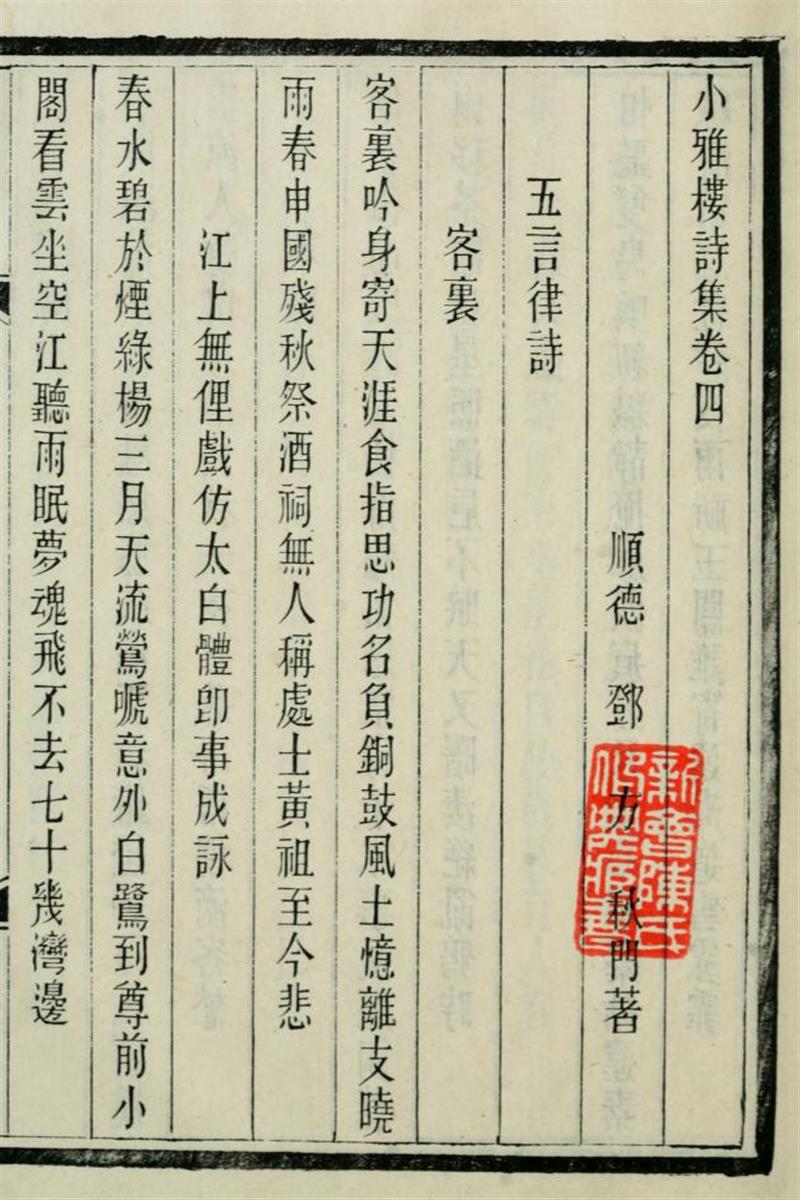 小雅樓詩集卷四
順德 鄧 方 秋門著
五言律詩
客裏
客裏吟身寄天涯食指思功名負銅鼓風土憶離支曉
雨春申國殘秋祭酒祠無人稱處士黃祖至今悲
江上無俚戲仿太白體卽事成詠
春水碧於煙綠楊三月天流鶯嗁意外白鷺到尊前小
閣看雲坐空江聽雨眠夢魂飛不去七十幾灣邊